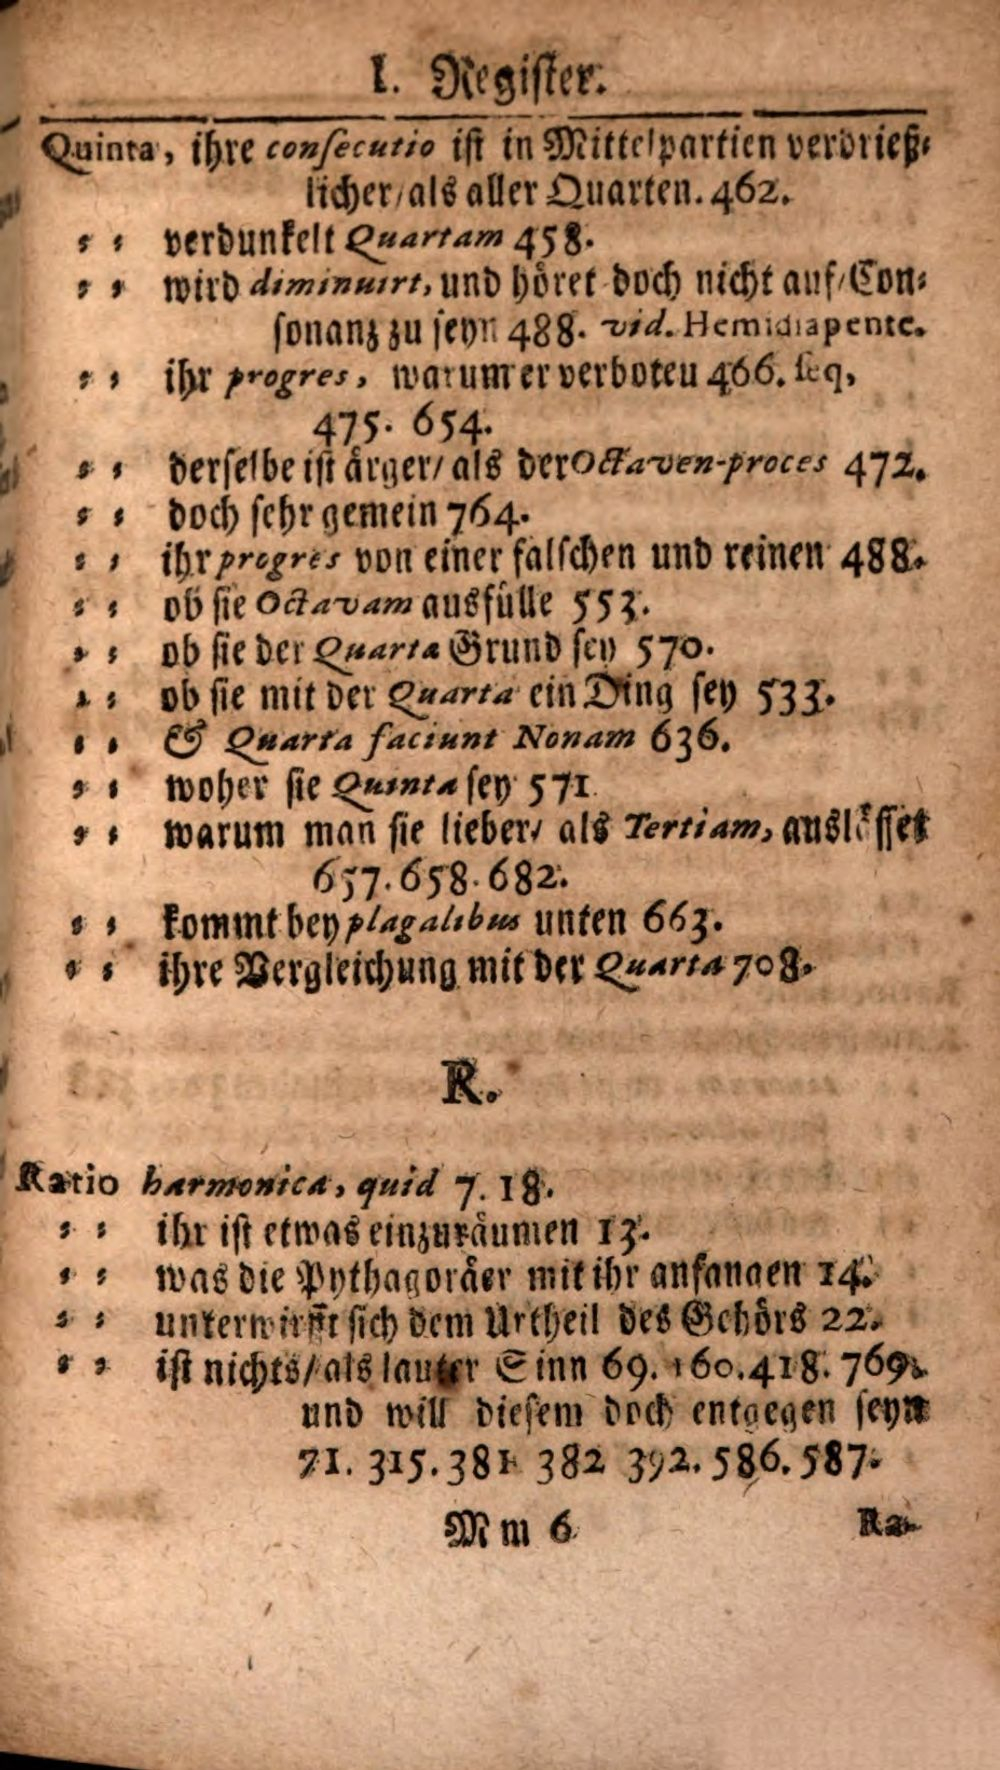 I. Register.
Quinta, ihre consecutio ist in Mittelpartien verdrieß-
licher/als aller Quarten. 462.
= = verdunkelt Quartam 458.
= = wird diminuirt, und höret doch nicht auf/Con-
sonanz zu seyn 488. vid. Hemidiapente.
= = ihr progres, warum er verboten 466. seq,
475. 654.
= = derselbe ist ärger/ als der Octaven-proces 472.
= = doch sehr gemein 764.
= = ihr progres von einer falschen und reinen 488.
= = ob sie Octavam ausfülle 553.
= = ob sie der Quarta Grund sey 570.
= = ob sie mit der Quarta ein Ding sey 533.
= = & Quarta faciunt Nonam 636.
= = woher sie Quinta sey 571
= = warum man sie lieber/ als Tertiam, auslässet
657. 658. 682.
= = kommt bey plagalibus unten 663.
= = ihre Vergleichung mit der Quarta 708.
R.
Ratio harmonica, quid 7. 18.
= = ihr ist etwas einzuräumen 13.
= = was die Pythagoräer mit ihr anfangen 14.
= = unterwirfft sich dem Urtheil des Gehörs 22.
= = ist nichts/als lauter Sinn 69. 160. 418. 769.
und will diesem doch entgegen seyn
71. 315. 381 382 392. 586. 587.
M m 6 Ra-